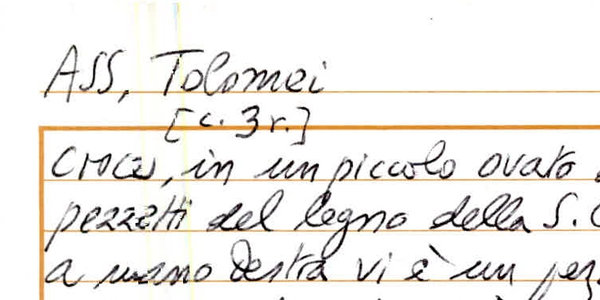 ASS, Tolomei
[c. 3 r.]
croce, in un piccolo ovato
pezzetti del legno della S.
a mano destra vi è un